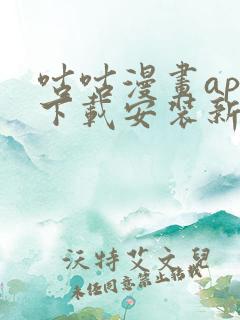 咕咕漫畫ap
下載安裝新
沃特艾文兒
未经同意禁止转载